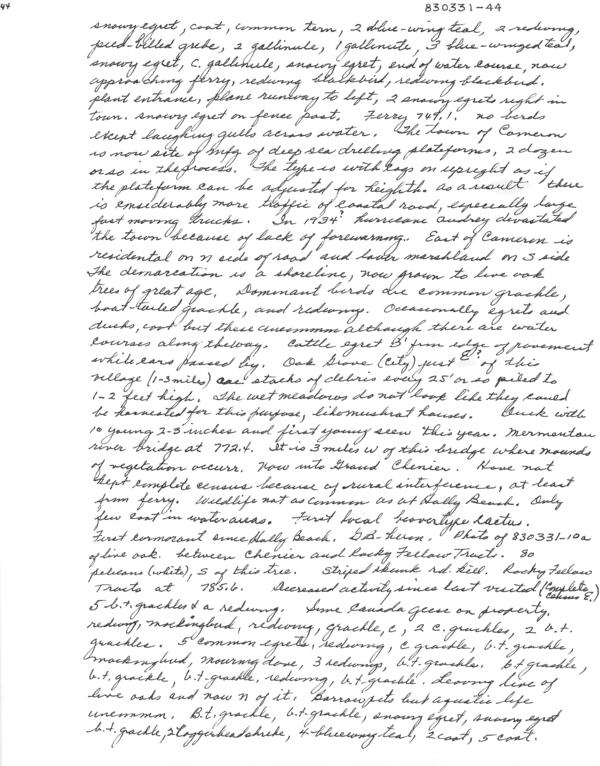 44
830331-44
snowy egret, coot, common tern, 2 blue-wing teal, 2 redwing,
pied-billed grebe, 2 gallinule, 1 gallinule, 3 blue-winged teal,
snowy egret, C. gallinule, snowy egret, end of water course, now
approaching ferry, redwing blackbird, redwing blackbird.
plant entrance, plane runway to left, 2 snowy egrets right in
town. snowy egret on fence post. Ferry 749.1. no birds
except laughing gulls across water. The town of Cameron
is now site of mfg of deep sea drilling plateforms, 2 dozen
or so in the process. The type is with cogs on upright as if
the plateform can be adjusted for heighth. as a result there
is considerably more traffic of coastal road, especially large
fast moving trucks. In 1934? hurricane Audrey devastated
the town because of lack of forewarning. East of Cameron is
residental on N side of road and lower marshland on S side
The demarcation is a shoreline, now grown to live oak
trees of great age. Dominant birds are common grackle,
boat-tailed grackle, and redwing. Occasionally egrets and
ducks, coot but these uncommon although there are water
courses along the way. Cattle egret 3' from edge of pavement
while cars passed by. Oak Grove (City) just E? of this
village (1-3 miles) are stacks of debris every 25' or so piled to
1-2 feet high. The wet meadows do not look like they could
be harnested for this purpose, like muskrat houses. Duck with
10 young 2-3 inches and first young seen this year. Mermentau
river bridge at 772.4. It is 3 miles W of this bridge where mounds
of vegetation occurr. Now into Grand Chenier. Have not
kept complete census because of rural interference, at least
from ferry. Wildlife not as common as at Holly Beach. Only
few coot in water areas. First local beavertype cactus.
First cormorant since Holly Beach. G.B. heron. Photo of 830331-10a
of live oak between Chenier and Rocky Fellow Tracts. 30
pelicans (white), S of this tree. Striped skunk rd. kill. Rocky Fellow
Tracts at 785.6. Decreased activity since last visited (Complete census E.)
5 b.t. grackles & a redwing. Some Canada Geese on property.
redwing, mockingbird, redwing, grackle, c, 2 C. grackles, 2 b.t.
grackles. 5 common egrets, redwing, C grackle, b.t. grackle,
mockingbird, mourning dove, 3 redwings, b.t. grackle. b.t. grackle,
b.t. grackle, b.t. grackle, redwing, b.t. grackle. Leaving line of
live oaks and now N of it. Barrow pits but aquatic life
uncommon. B.t. grackle, b.t. grackle, snowy egret, snowy egret
b.t. grackle, 2 loggerhead shrike, 4 bluewing teal, 2 coot, 5 coot.